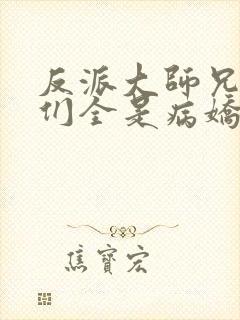 反派大師兄
们全是病嬌
焦寶宏